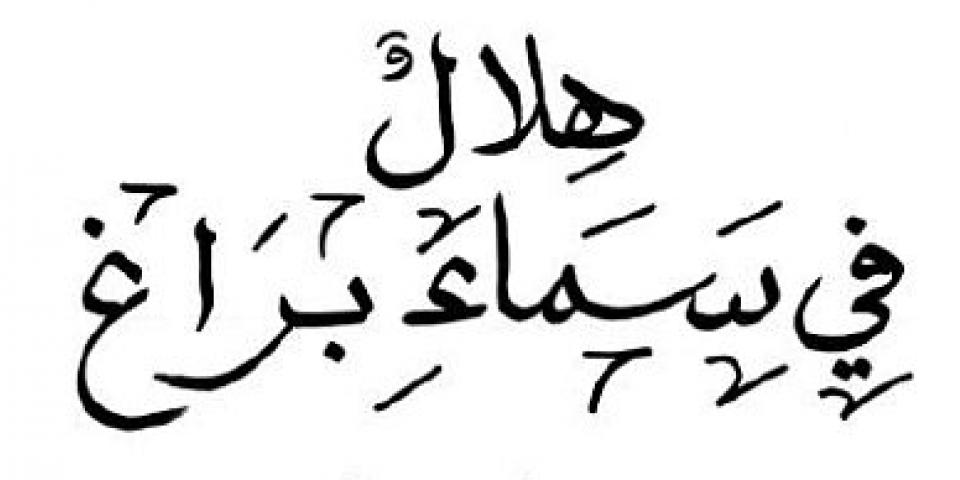 هِلالٌ
في سَمَاءِ بْرَاغْ